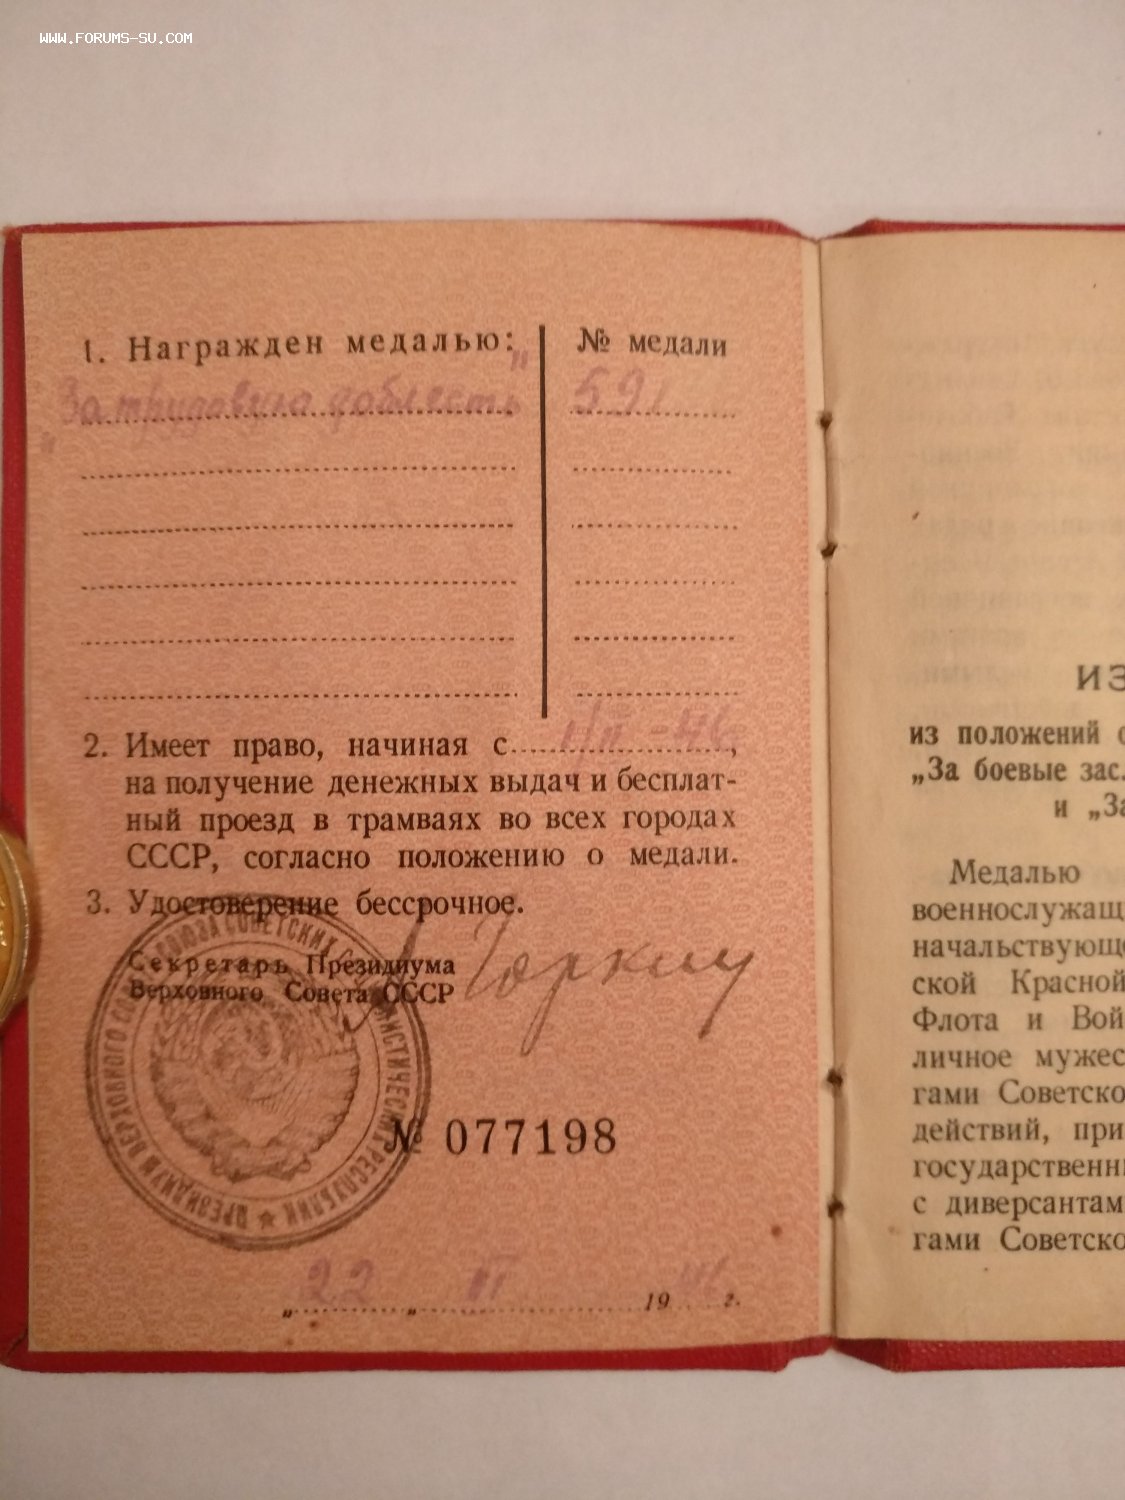 WWW.FORUMS-SU.COM
1. Награжден медалью:
№ медали
„За трудовую доблесть"
591
2. Имеет право, начиная с 1/II-46,
на получение денежных выдач и бесплат-
ный проезд в трамваях во всех городах
СССР, согласно положению о медали.
3. Удостоверение бессрочное.
Секретарь Президиума
Верховного Совета СССР
Горкин
ПРЕЗИДИУМ ВЕРХОВНОГО СОВЕТА СОЮЗА СОВЕТСКИХ СОЦИАЛИСТИЧЕСКИХ РЕСПУБЛИК
№ 077198
„22„ 1946 г.
ИЗ
из положений о
„За боевые зас
и „За
Медалью
военнослужащ
начальствующ
ской Красной
Флота и Вой
личное мужес
гами Советско
действий, при
государственн
с диверсантам
гами Советско